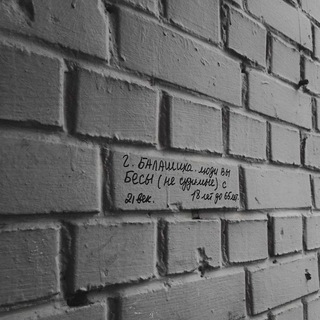 г. БАЛАШИХА. люди вы
БЕСЫ (не судимые) с
21 век. 18 лет до 65 лет.